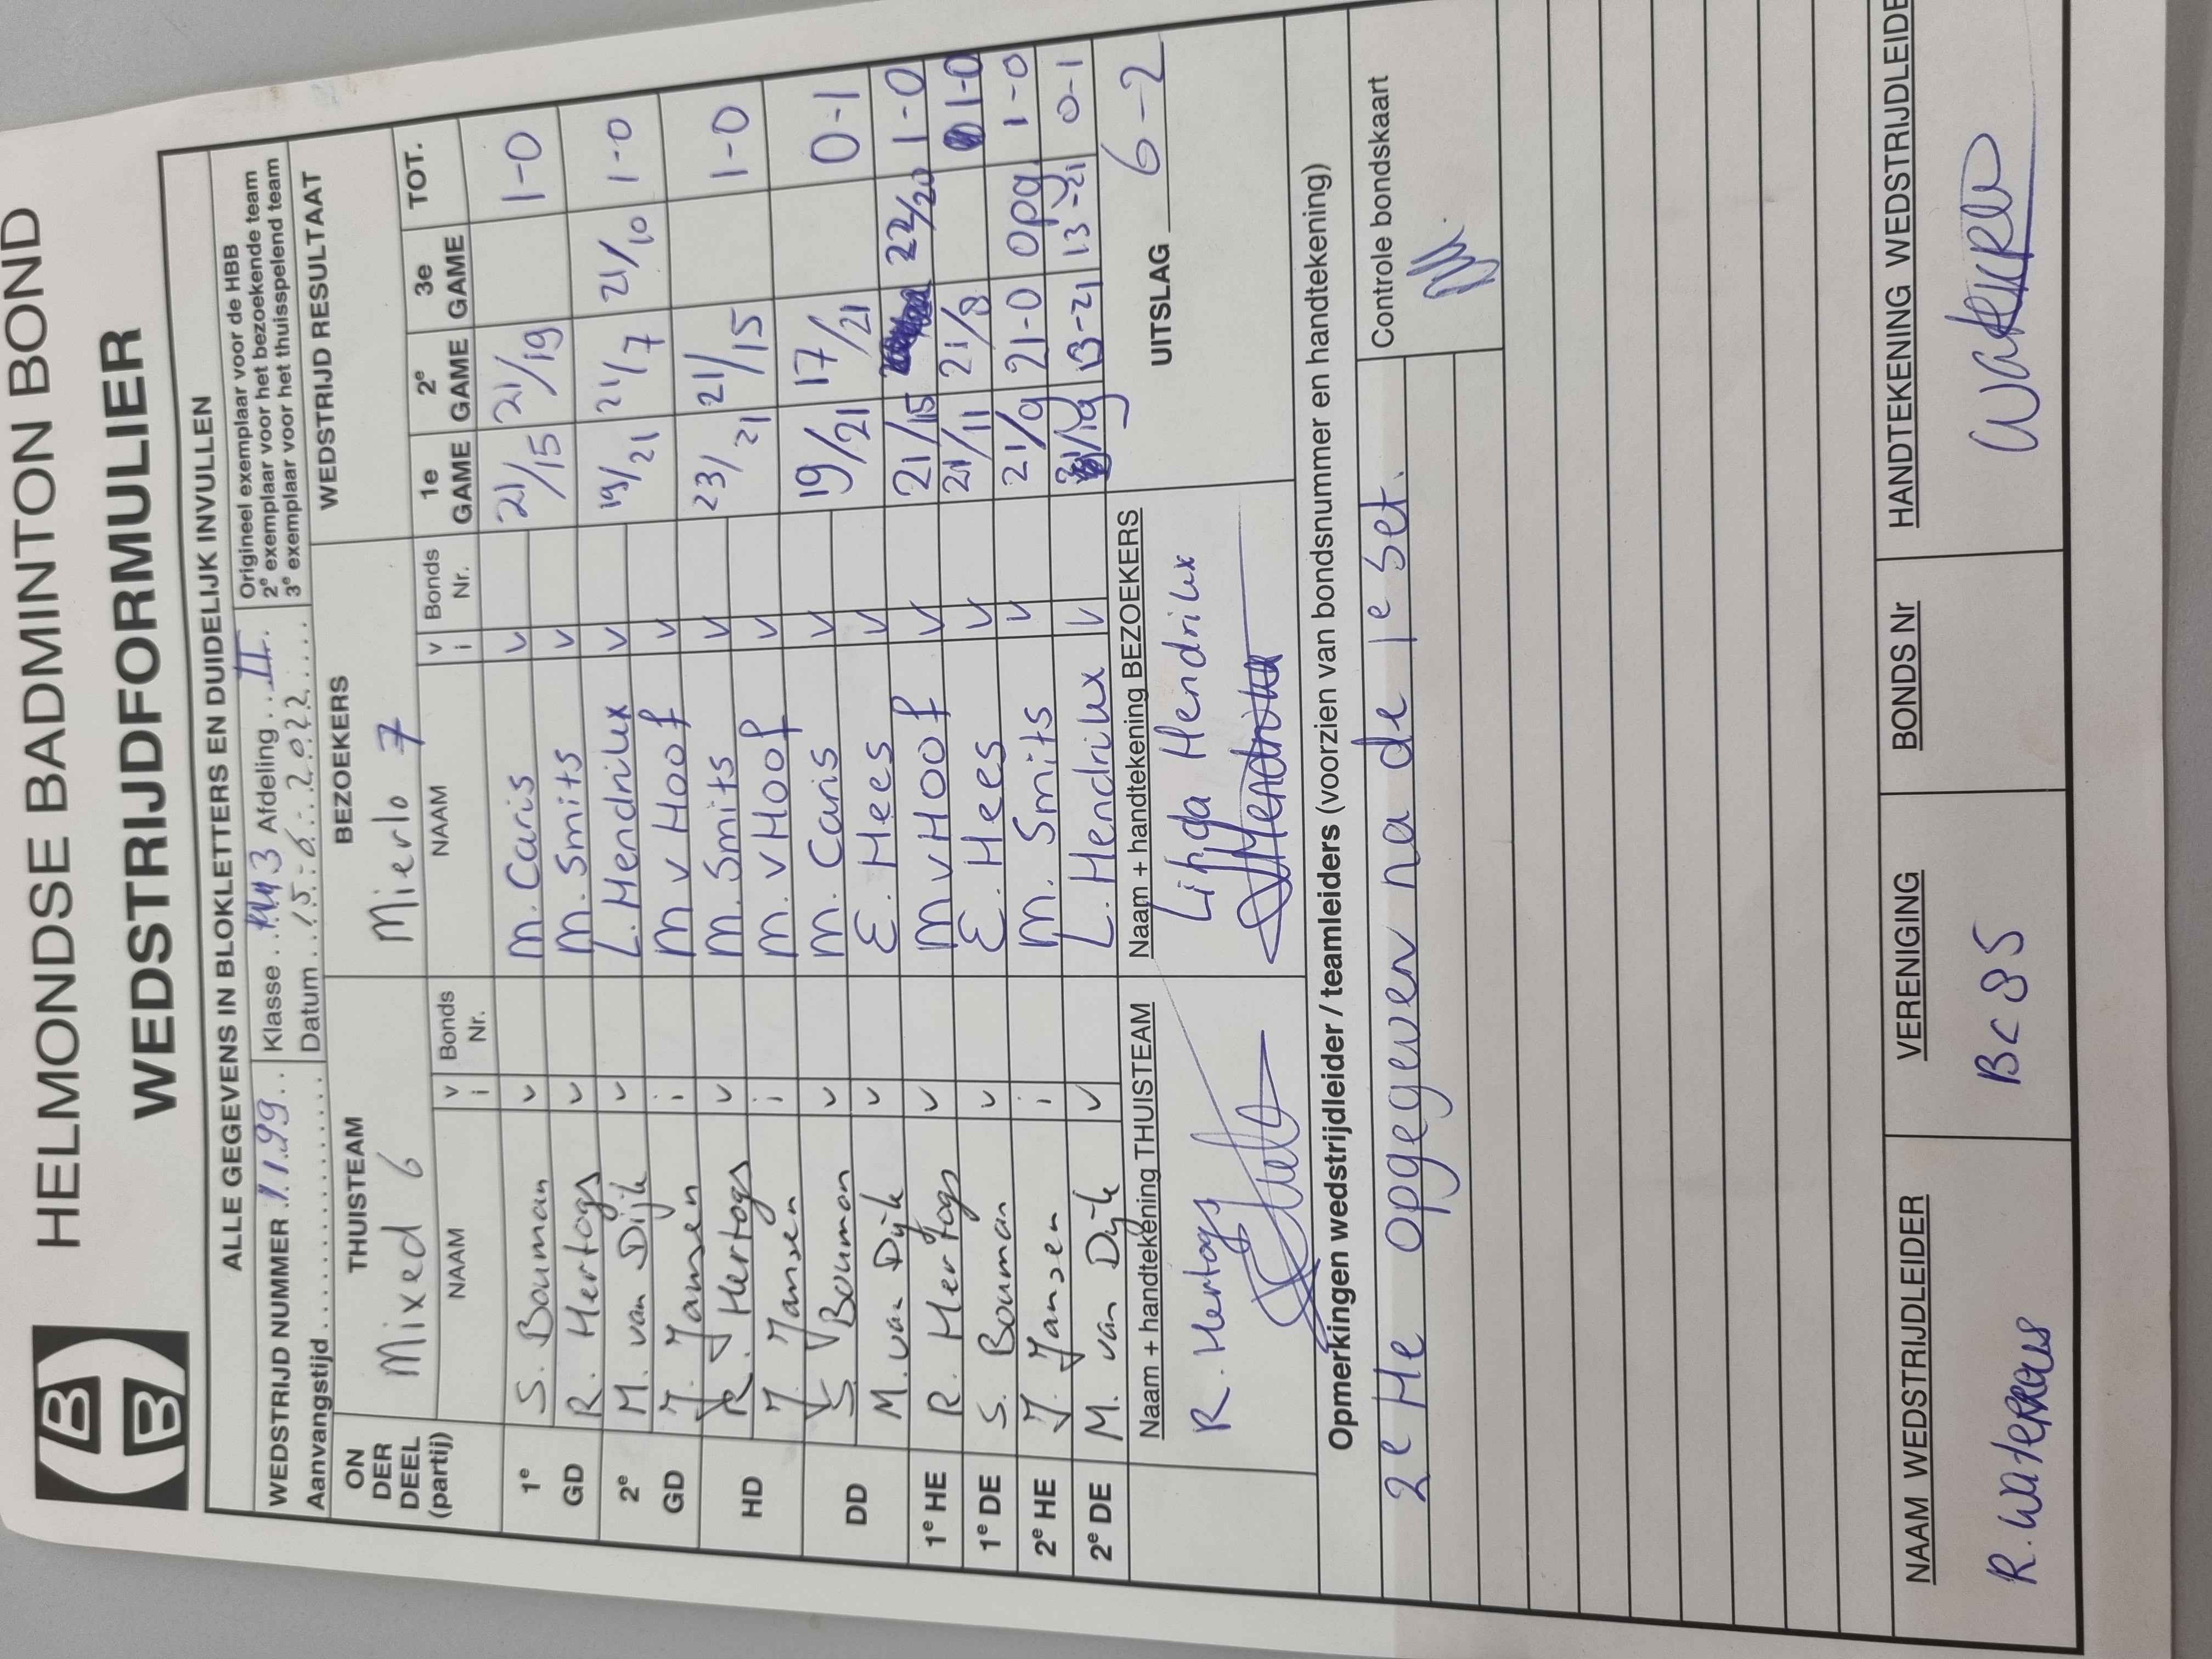 HELMONDSE BADMINTON BOND
WEDSTRIJDFORMULIER
ALLE GEGEVENS IN BLOKLETTERS EN DUIDELIJK INVULLEN
WEDSTRIJD NUMMER 1.1.99 Klasse 3 Afdeling II
Aanvangstijd Datum 15-6-2022
Origineel exemplaar voor de HBB
2e exemplaar voor het bezoekende team
3e exemplaar voor het thuisspelend team
ON DER DEEL (partij) THUISTEAM BEZOEKERS WEDSTRIJD RESULTAAT
Mixed 6 Mierlo 7
NAAM v i Bonds Nr. NAAM v i Bonds Nr. 1e GAME 2e GAME 3e GAME TOT.
1e S. Bouman v M. Caris v 21/15 21/19 1-0
GD R. Hertogs v M. Smits v
2e M. van Dijk v L. Hendrikx v 19/21 21/7 21/10 1-0
GD J. Jansen i M v Hoof v
HD R. Hertogs v M. Smits v 23/21 21/15 1-0
J. Jansen i M. v Hoof v
DD S. Bouman v M. Caris v 19/21 17/21 0-1
M. van Dijk v E. Hees v
1e HE R. Hertogs v M v Hoof v 21/15 22/20 1-0
1e DE S. Bouman v E. Hees v 21/11 21/8 1-0
2e HE J. Jansen i M. Smits v 21/9 21-0 opg. 1-0
2e DE M. van Dijk v L. Hendrikx v 13-21 13-21 0-1
Naam + handtekening THUISTEAM Naam + handtekening BEZOEKERS UITSLAG 6-2
R. Hertogs Linda Hendrikx
Opmerkingen wedstrijdleider / teamleiders (voorzien van bondsnummer en handtekening)
2e He opgegeven na de 1e set.
Controle bondskaart
NAAM WEDSTRIJDLEIDER VERENIGING BONDS Nr HANDTEKENING WEDSTRIJDLEIDE
R. Waterreus BC 85